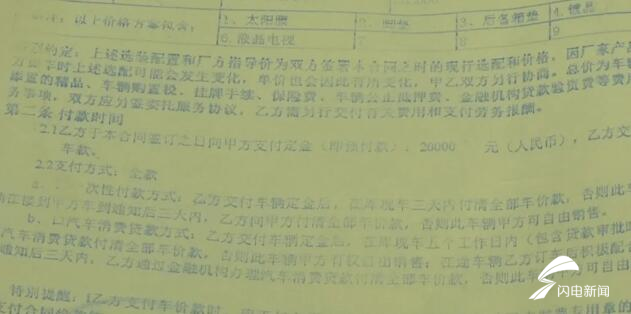 以上价格方案包含：
1、太阳膜
2、脚垫
3、后备箱垫
4、镀晶
6、液晶电视
7
8
9
特别约定：上述选装配置和厂方指导价为双方签署本合同之时的现行选配和价格，因厂家产品
方提车时上述选配可能会发生变化，单价也会因此有所变化，甲乙双方另行协商。总价为车辆
添置的精品、车辆购置税、挂牌手续、保险费、车辆公正抵押费、金融机构贷款验资费等费用
务事项，双方应另签委托服务协议，乙方需另行交付有关费用和支付劳务报酬。
第二条 付款时间
2.1乙方于本合同签订之日向甲方支付定金（即预付款）：20000 元（人民币），乙方交
车款。
2.2支付方式：全款
a、 一次性付款方式：乙方交付车辆定金后，在库现车三天内付清全部车价款，否则此车
接到甲方车到通知后三天内，乙方向甲方付清全部车价款，否则此车辆甲方可自由销售。
b、口汽车消费贷款方式：乙方交付车辆定金后，在库现车五个工作日内（包含贷款审批
汽车消费贷款付清全部车价款，否则此车辆甲方有权自由销售；在途车辆乙方订车后积极配合
通知后三天内，乙方通过金融机构办理汽车消费贷款付清全部车价款，否则此车辆甲方可自由
特别提醒：1乙方支付车价款时
闪电新闻